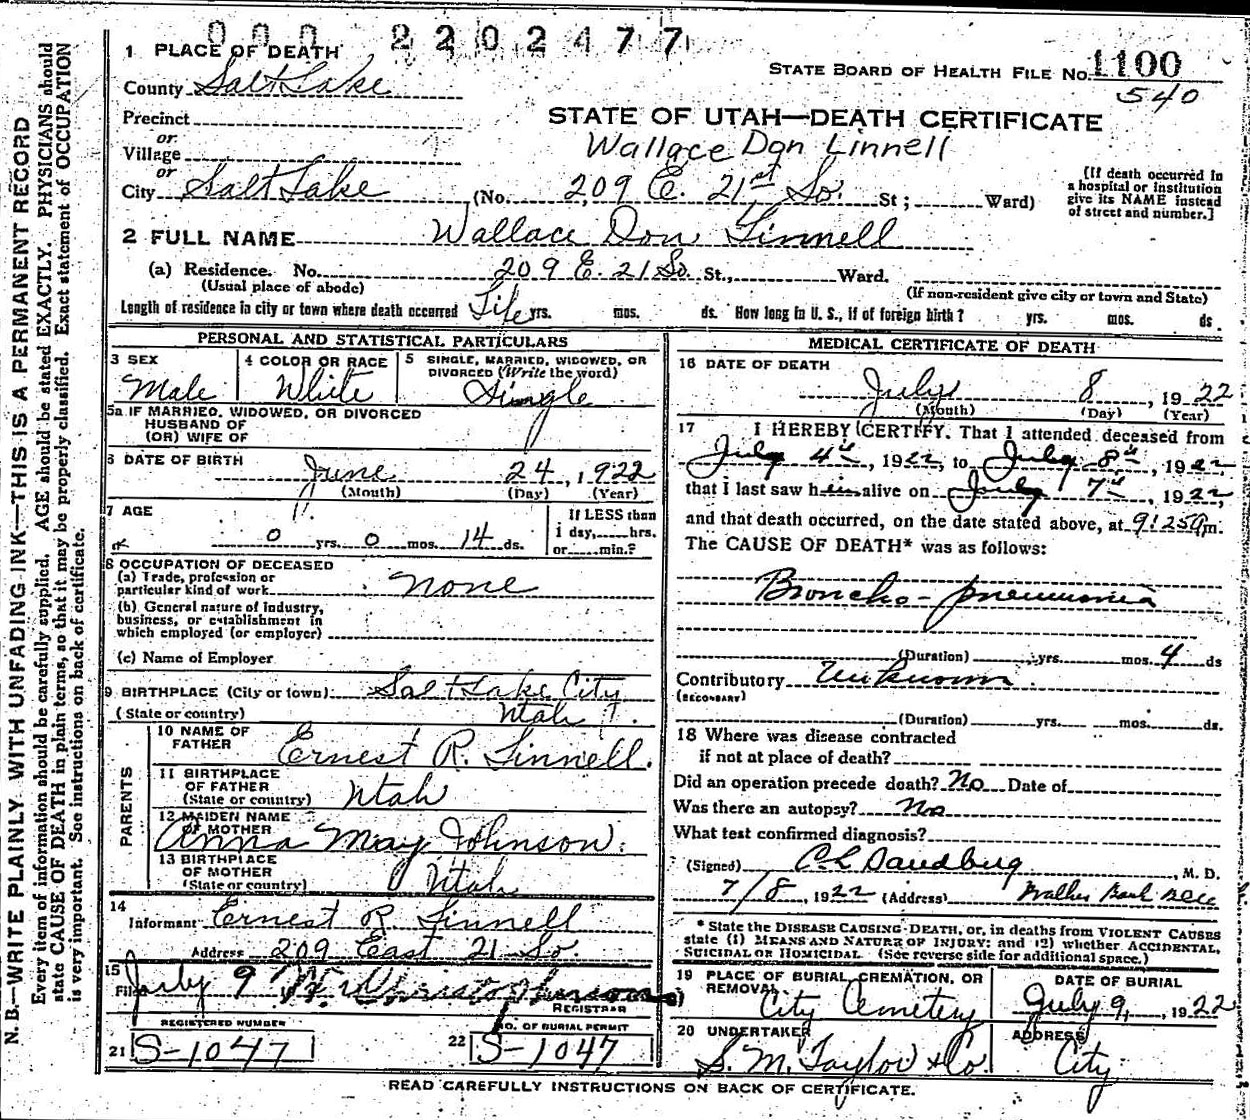 000 2202477
1 PLACE OF DEATH
STATE BOARD OF HEALTH FILE No. 1100
540
County Salt Lake
Precinct
STATE OF UTAH—DEATH CERTIFICATE
or
Village
Wallace Don Linnell
or
City Salt Lake (No. 209 E. 21st So. St; Ward)
[If death occurred in
a hospital or institution
give its NAME instead
of street and number.]
2 FULL NAME Wallace Don Linnell
(a) Residence. No. 209 E. 21 So. St., Ward.
(Usual place of abode)
(If non-resident give city or town and State)
Length of residence in city or town where death occurred Life yrs. mos. ds. How long in U. S., if of foreign birth? yrs. mos. ds.
PERSONAL AND STATISTICAL PARTICULARS
3 SEX
Male
4 COLOR OR RACE
White
5 SINGLE, MARRIED, WIDOWED, OR
DIVORCED (Write the word)
Single
5a IF MARRIED, WIDOWED, OR DIVORCED
HUSBAND OF
(OR) WIFE OF
6 DATE OF BIRTH June 24, 1922
(Month) (Day) (Year)
7 AGE
0 yrs. 0 mos. 14 ds.
If LESS than
1 day, hrs.
or min.?
8 OCCUPATION OF DECEASED
(a) Trade, profession or
particular kind of work none
(b) General nature of industry,
business, or establishment in
which employed (or employer)
(c) Name of Employer
9 BIRTHPLACE (City or town) Salt Lake City
(State or country) Utah
PARENTS
10 NAME OF
FATHER Ernest R. Linnell.
11 BIRTHPLACE
OF FATHER
(State or country) Utah
12 MAIDEN NAME
OF MOTHER
Anna May Johnson
13 BIRTHPLACE
OF MOTHER
(State or country) Utah
14
Informant Ernest R. Linnell
Address 209 East 21 So.
15
Filed July 9
REGISTRAR
REGISTERED NUMBER
21 S-1047
NO. OF BURIAL PERMIT
22 S-1047
MEDICAL CERTIFICATE OF DEATH
16 DATE OF DEATH
July 8, 1922
(Month) (Day) (Year)
17 I HEREBY CERTIFY. That I attended deceased from
July 4th, 1922, to July 8th, 1922
that I last saw him alive on July 7th, 1922,
and that death occurred, on the date stated above, at 9:25 am.
The CAUSE OF DEATH* was as follows:
Broncho-pneumonia
(Duration) yrs. mos. 4 ds
Contributory Unknown.
(SECONDARY)
(Duration) yrs. mos. ds.
18 Where was disease contracted
if not at place of death?
Did an operation precede death? No Date of
Was there an autopsy? No
What test confirmed diagnosis?
(Signed) C L Sandberg, M. D.
7/8, 1922 (Address) Walker Bank
* State the DISEASE CAUSING DEATH, or, in deaths from VIOLENT CAUSES
state (1) MEANS AND NATURE OF INJURY; and (2) whether ACCIDENTAL,
SUICIDAL OR HOMICIDAL. (See reverse side for additional space.)
19 PLACE OF BURIAL, CREMATION, OR
REMOVAL
City Cemetery
DATE OF BURIAL
July 9, 1922
20 UNDERTAKER
S. M. Taylor & Co.
ADDRESS
City
READ CAREFULLY INSTRUCTIONS ON BACK OF CERTIFICATE.
N. B.—WRITE PLAINLY WITH UNFADING INK—THIS IS A PERMANENT RECORD
Every item of information should be carefully supplied. AGE should be stated EXACTLY. PHYSICIANS should
state CAUSE OF DEATH in plain terms, so that it may be properly classified. Exact statement of OCCUPATION
is very important. See instructions on back of certificate.